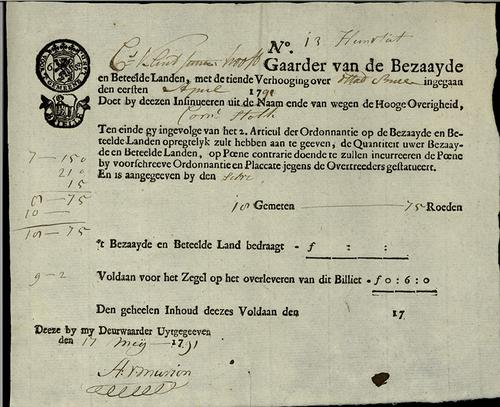 No. 13
Gaarder van de Bezaayde
en Beteelde Landen, met de tiende Verhooging over ingegaan
den eersten April 1791
Doet by deezen Insinueeren uit de Naam ende van wegen de Hooge Overigheid,
Ten einde gy ingevolge van het 2. Articul der Ordonnantie op de Bezaayde en Be-
teelde Landen opregtelyk zult hebben aan te geeven, de Quantiteit uwer Bezaay-
de en Beteelde Landen, op Pœne contrarie doende te zullen incurreeren de Pœne
by voorschreeve Ordonnantie en Placcate jegens de Overtreeders gestatueert.
En is aangegeeven by den
7 — 150
210
15
8 — 75
10 —
18 — 75
18 Gemeten 75 Roeden
't Bezaayde en Beteelde Land bedraagt - f : :
9 - 2
Voldaan voor het Zegel op het overleveren van dit Billiet - f 0 : 6 : 0
Den geheelen Inhoud deezes Voldaan den 17
Deeze by my Deurwaarder Uytgegeeven
den 17 Meij 1791